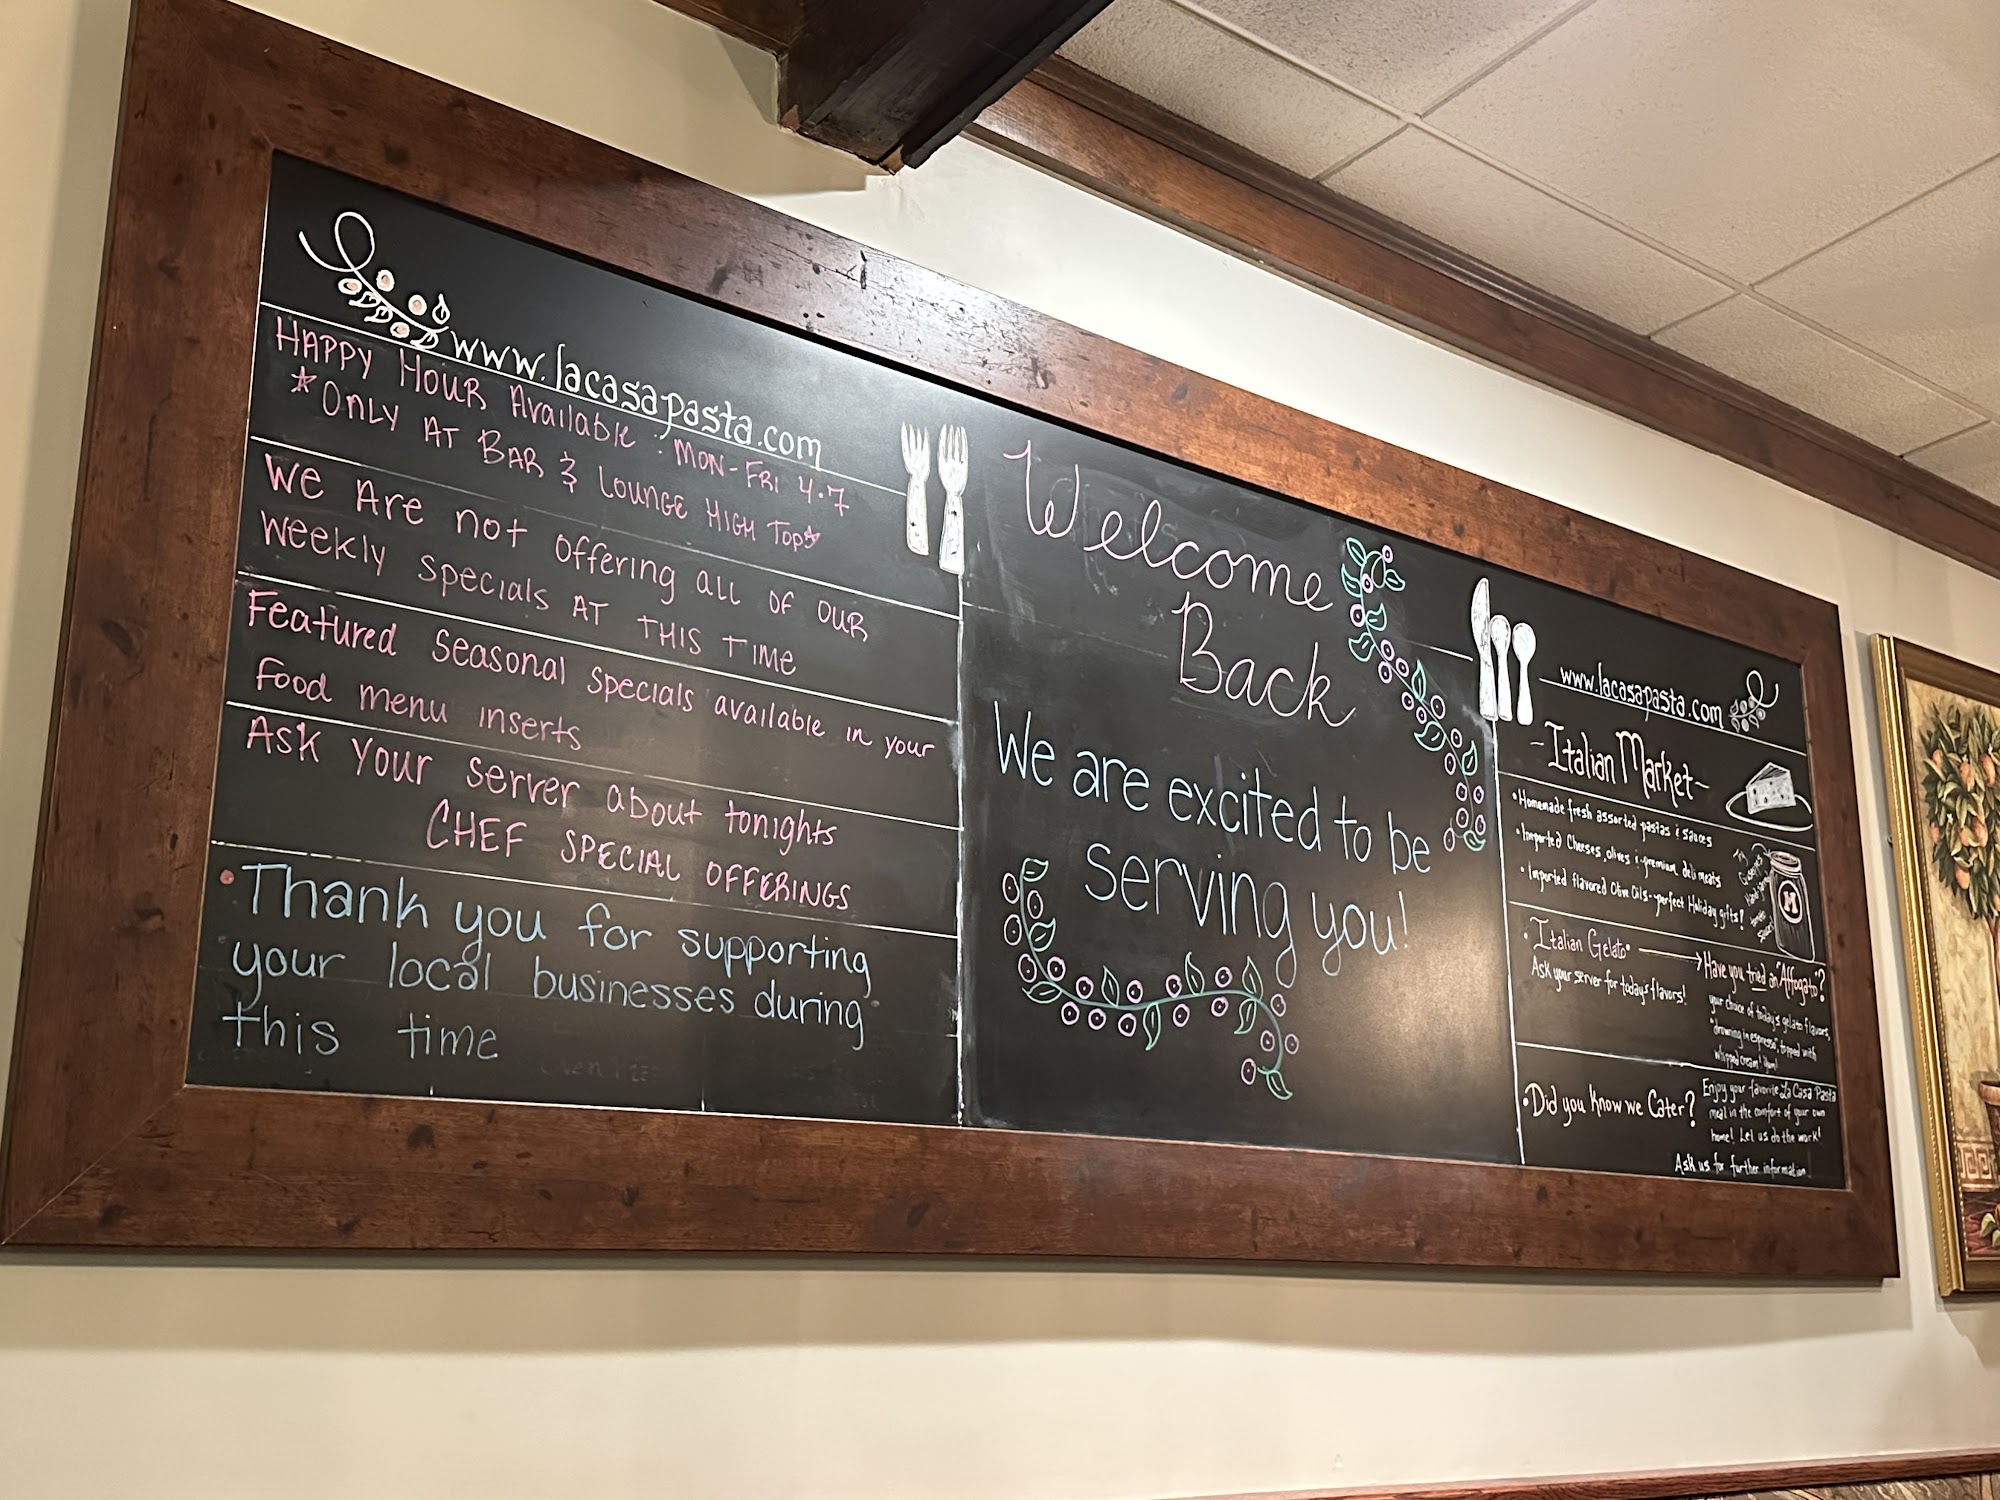 www.lacasapasta.com
Happy Hour Available: Mon-Fri 4-7
*Only At Bar & Lounge High Tops*
We Are not offering all of our
weekly specials at this time
Featured seasonal specials available in your
food menu inserts
Ask your server about tonights
Chef Special Offerings
•Thank you for supporting
your local businesses during
this time
Welcome
Back
We are excited to be
serving you!
www.lacasapasta.com
-Italian Market-
•Homemade fresh assorted pastas & sauces
•Imported Cheeses, olives & premium deli meats
•Imported flavored Olive Oils - perfect Holiday gifts!
Try
Giuseppe's
Sauces!
M
•Italian Gelato•
Ask your server for todays flavors!
Have you tried an "Affogato"?
your choice of today's gelato flavors,
"drowning in espresso", topped with
whipped cream! Yum!
•Did you Know we Cater?
Enjoy your favorite La Casa Pasta
meal in the comfort of your own
home! Let us do the work!
Ask us for further information